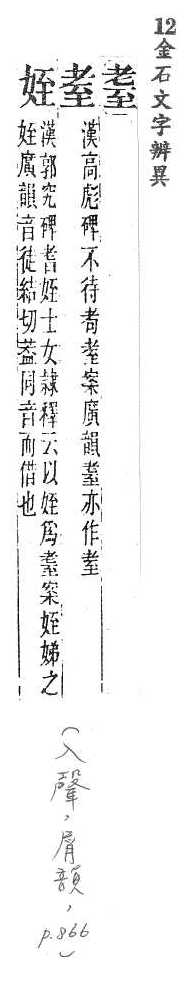 12金石文字辨異
耋
耊
漢高彪碑不待耇耊案廣韻耋亦作耊
姪
漢郭究碑耆姪士女隸釋云以姪爲耋案姪娣之
姪廣韻音徒結切葢同音而借也
(入聲,屑韻,p.866)